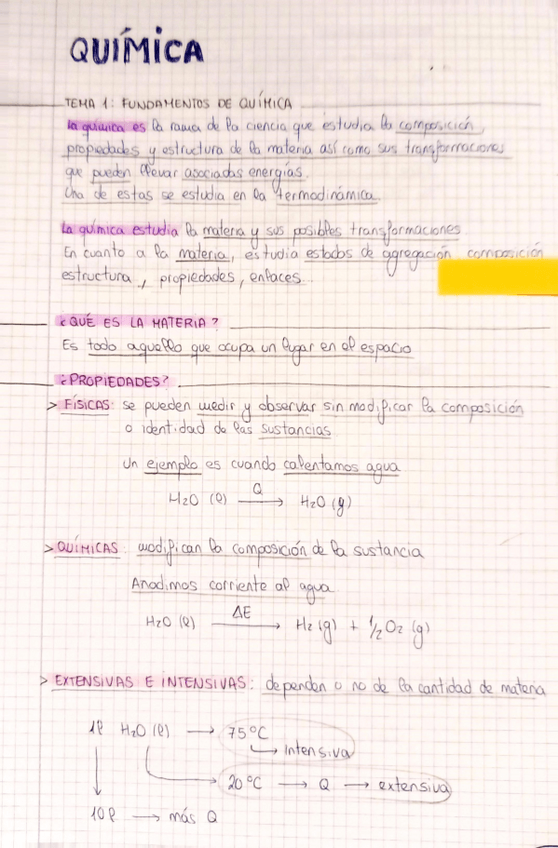 QUÍMICA
TEMA 1: FUNDAMENTOS DE QUÍMICA
la química es la rama de la ciencia que estudia la composición,
propiedades y estructura de la materia así como sus transformaciones
que pueden llevar asociadas energías.
Una de estas se estudia en la termodinámica.
La química estudia la materia y sus posibles transformaciones.
En cuanto a la materia, estudia estados de agregación, composición
estructura, propiedades, enlaces...
¿QUÉ ES LA MATERIA?
Es todo aquello que ocupa un lugar en el espacio
¿PROPIEDADES?
> FÍSICAS: se pueden medir y observar sin modificar la composición
o identidad de las sustancias.
Un ejemplo es cuando calentamos agua
Q
H2O (l) → H2O (g)
> QUÍMICAS: modifican la composición de la sustancia
Anadimos corriente al agua.
ΔE
H2O (l) → H2 (g) + 1/2 O2 (g)
> EXTENSIVAS E INTENSIVAS: dependen o no de la cantidad de materia
1l H2O (l) → 75°C
↳ Intensiva
20°C → Q → extensiva
10l → más Q